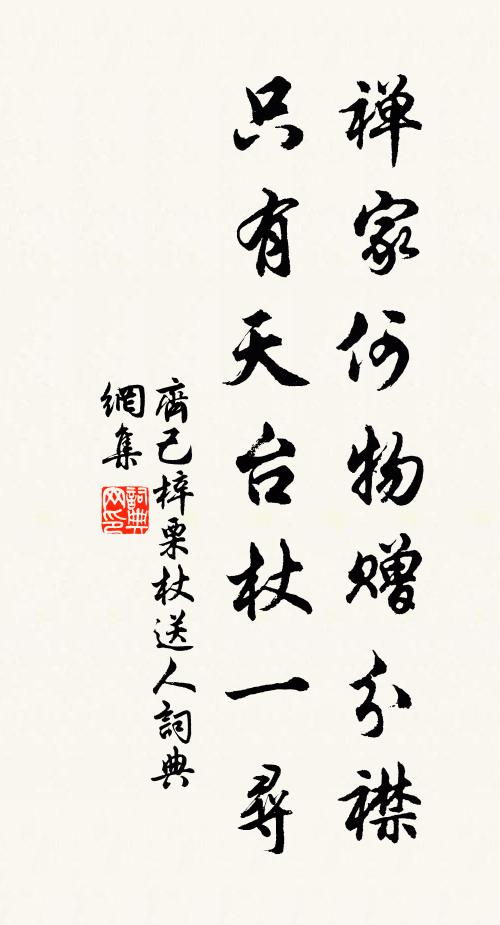 禅家何物赠分襟
只有天台杖一尋
齊己梓栗杖送人詞典
網集
詞典网印